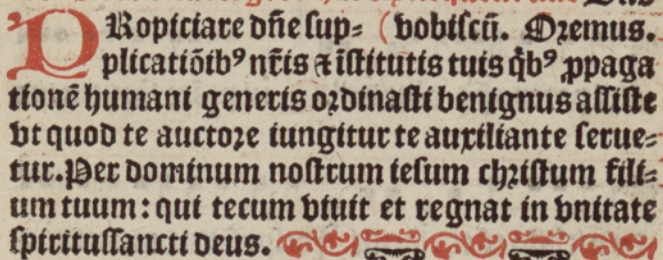 PRopiciare dñe sup⸗ (vobiscū. Oꝛemus.
plicatiōibꝰ nr̄is ⁊ īstitutis tuis q̄bꝰ ꝓpaga
tionē humani generis oꝛdinasti benignus assiste
vt quod te auctoꝛe iungitur te auxiliante serue⸗
tur. Per dominum nostrum iesum chꝛistum fili⸗
um tuum: qui tecum viuit et regnat in vnitate
spiritussancti deus.